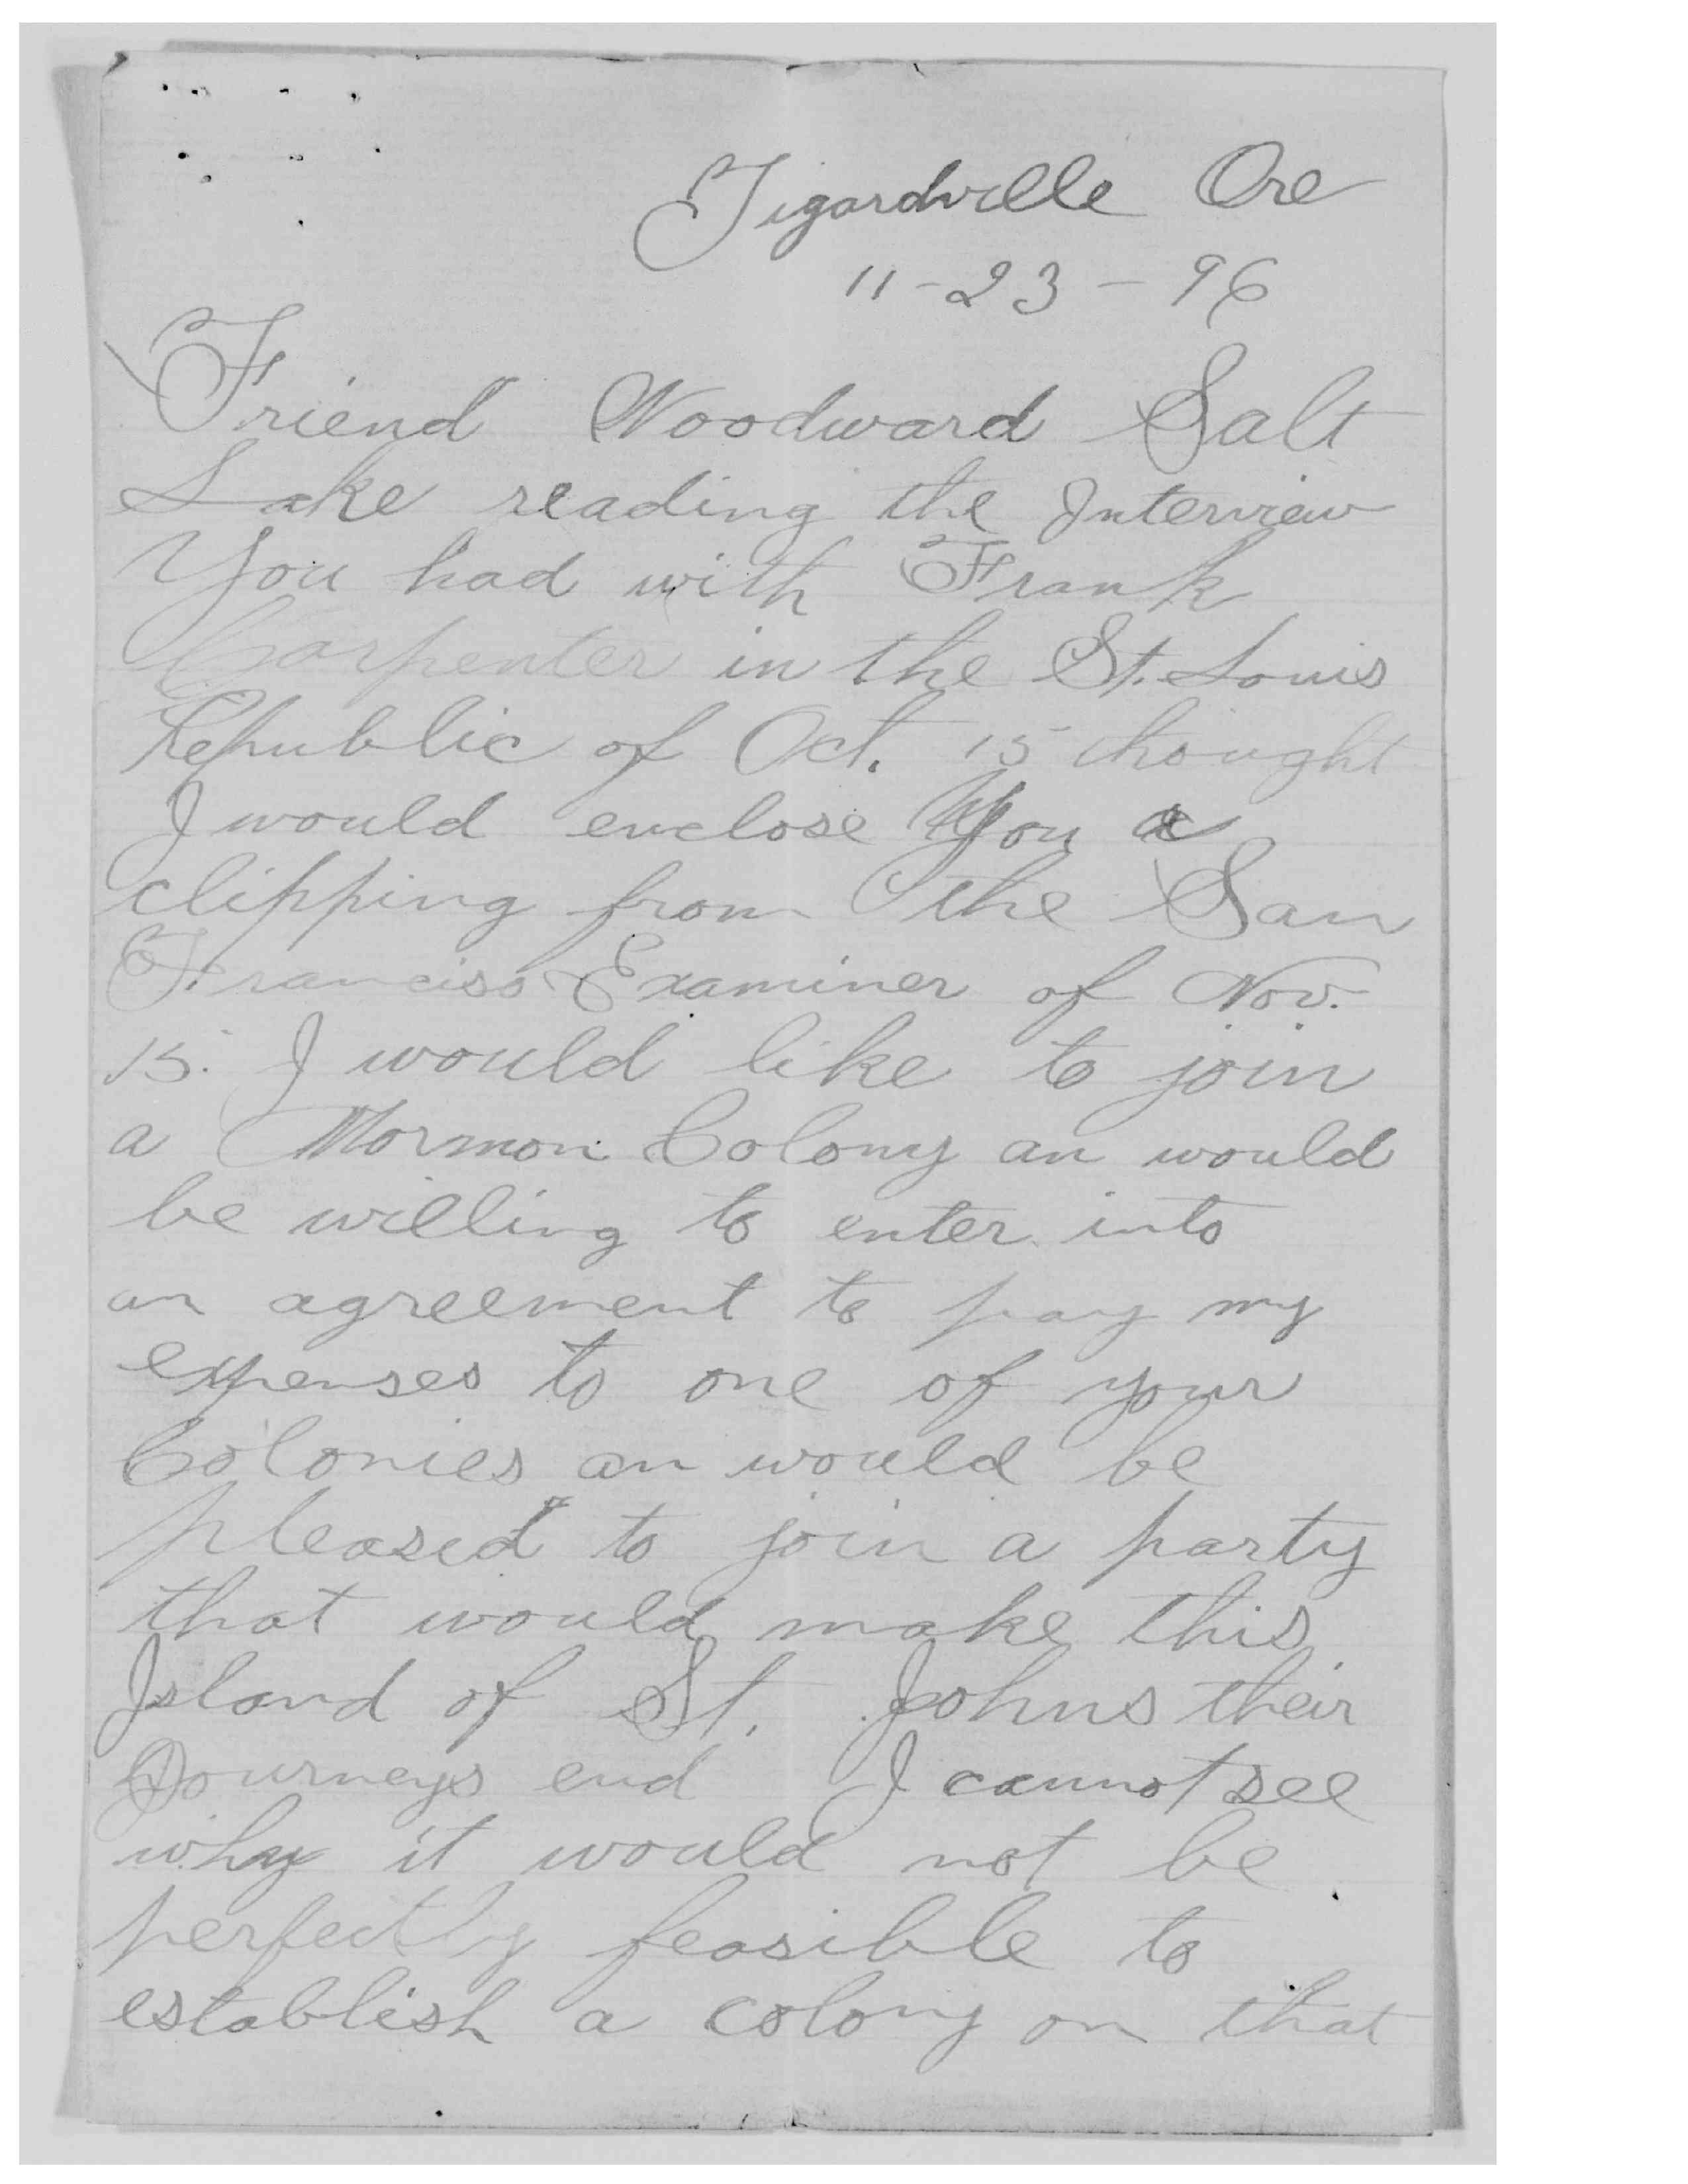 Tigardville Ore
11-23-96
Friend Woodward Salt
Lake reading the Interview
You had with Frank
Carpenter in the St. Louis
Republic of Oct. 15 thought
I would enclose You a
clipping from the San
Francisso Examiner of Nov.
15. I would like to join
a Mormon Colony an would
be willing to enter into
an agreement to pay my
expenses to one of your
Colonies an would be
pleased to join a party
that would make this
Island of St. Johns their
Journeys end I cannot see
why it would not be
perfectly feasible to
establish a colony on that